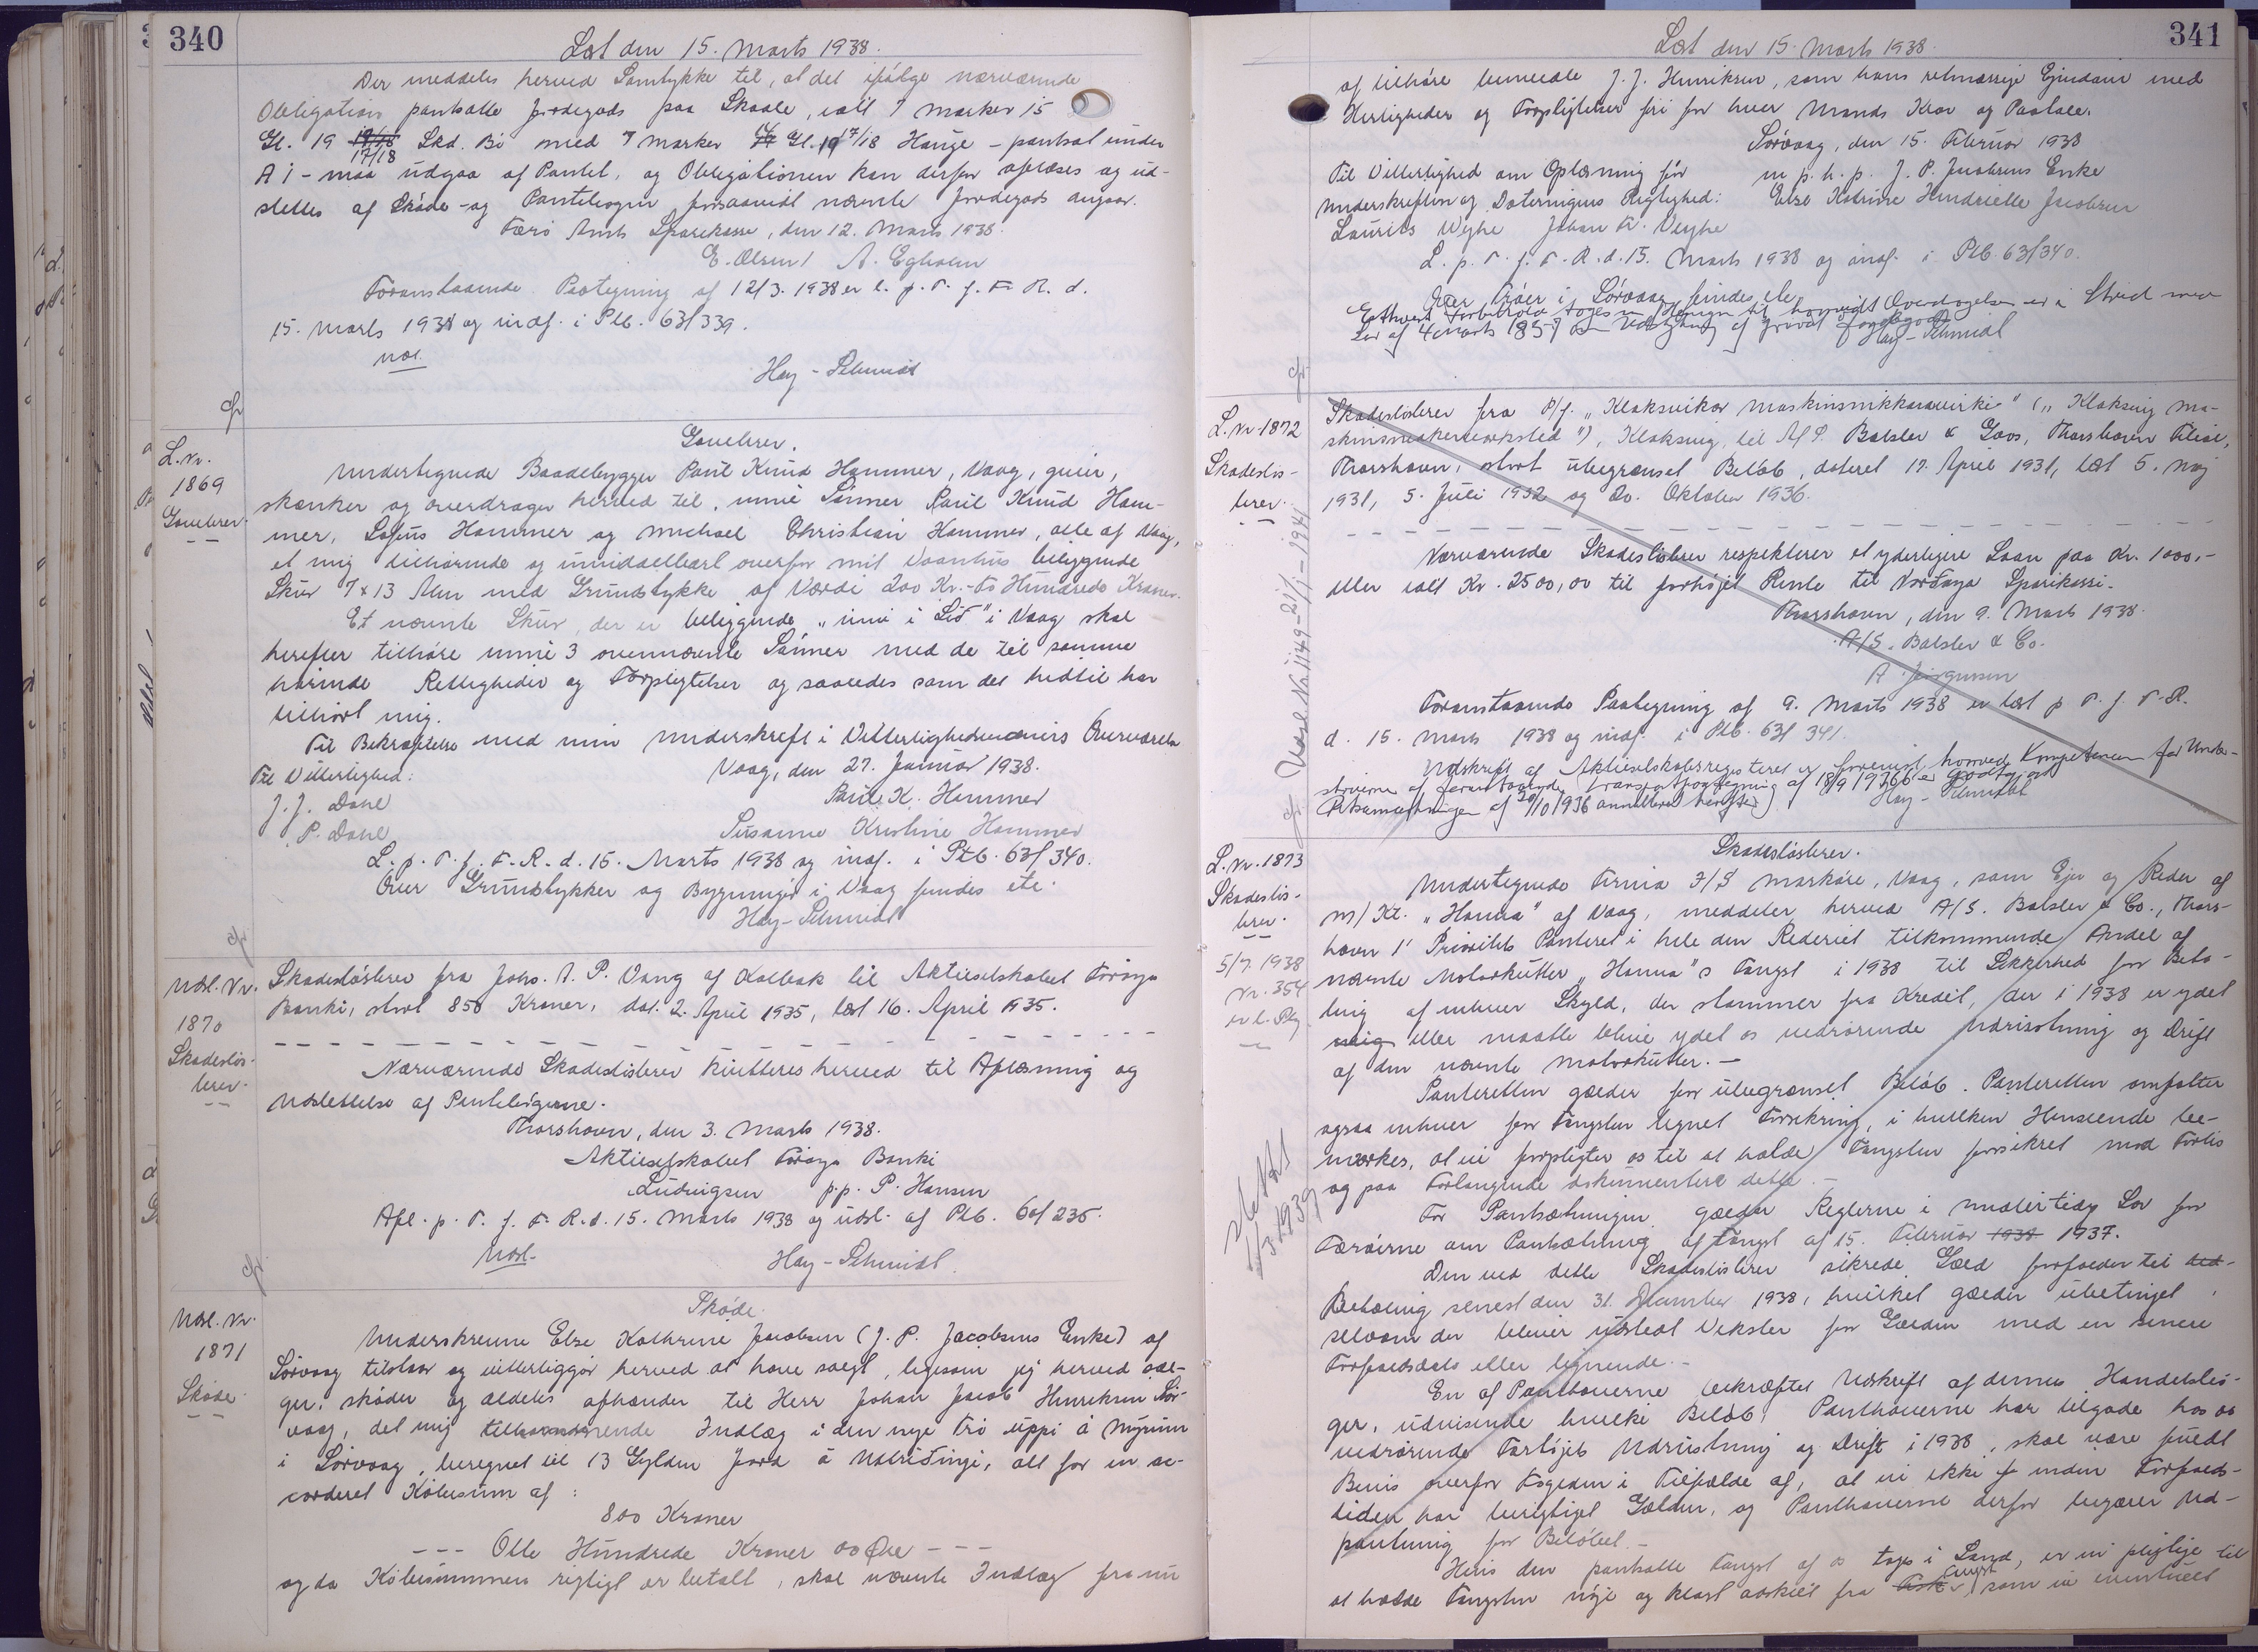 340
Læst den 15. Marts 1938.
Der meddeles herved Samtykke til, at det ifølge nærværende
Obligation pantsatte Jordegods paa Skaale, ialt 7 Marker 15
Gl. 19 17/18 Skd. Bø med 7 Marker Gl. 19 17/18 Hauge - pantsat under
A i - maa udgaa af Pantet, og Obligationen kan derfor aflæses og ud-
slettes af Skøde- og Pantebogen forsaavidt nævnte Jordegods angaar.
Færø Amts Sparekasse, den 12. Marts 1938.
E. Olsen / A. Egholm
Foranstaaende Paategning af 12/3. 1938 er l. p. T. f. F. R. d.
15. Marts 1938 og indf. i Ptb. 63/339.
Hay-Schmidt
L. Nr.
1869
Gavebrev.
Gavebrev.
Undertegnede Baadebygger Paul Knud Hammer, Vaag, giver,
skænker og overdrager herved til, mine Sønner Paul Knud Ham-
mer, Sofus Hammer og Michael Christian Hammer, alle af Vaag,
et mig tilhørende og umiddelbart overfor mit Vaanhus beliggende
Skur 7 x 13 Alen med Grundstykke af Værdi 200 Kr. - to Hundrede Kroner.
Et nævnte Skur, der er beliggende "inni i Lið" i Vaag skal
herefter tilhøre mine 3 ovennævnte Sønner med de til samme
hørende Rettigheder og Forpligtelser og saaledes som det hidtil har
tilhørt mig.
Til Bekræftelse med min Underskrift i Vitterlighedsvidners Overværelse
Til Vitterlighed: Vaag, den 27. Januar 1938.
J. J. Dahl Paul K. Hammer
P. Dahl Susanne Kristine Hammer
L. p. T. f. F. R. d. 15. Marts 1938 og indf. i Ptb. 63/340.
Over Grundstykker og Bygninger i Vaag findes etc.
Hay-Schmidt
Udsl. Nr.
1870
Skadesløs-
brev.
Skadesløsbrev fra Johs. A. P. Vang af Kolbak til Aktieselskabet Føroya
Banki, stort 850 Kroner, dat. 2. April 1935, læst 16. April 1935.
Nærværende Skadesløsbrev kvitteres herved til Aflæsning og
Udslettelse af Pantebøgerne.
Thorshavn, den 3. Marts 1938.
Aktieselskabet Føroya Banki
Ludvigsen p.p. P. Hansen
Afl. p. T. f. F. R. d. 15. Marts 1938 og udsl. af Ptb. 60/235.
Udsl. Hay-Schmidt.
Udsl. Nr.
1871
Skøde.
Skøde.
Underskrevne Else Kathrine Jacobsen (J. P. Jacobsens Enke) af
Sørvaag tilstaar og vitterliggør herved at have solgt, ligesom jeg herved sæl-
ger, skøder og aldeles afhænder til Herr Johan Jacob Henriksen Sør-
vaag, det mig tilhørende Indlæg i den nye Trø uppi á Mýrunum
i Sørvaag, beregnet til 13 Gylden Jord á Uttriðingi, alt for en ac-
corderet Købesum af:
800 Kroner
--- Otte Hundrede Kroner 00 Øre ---
og da Købesummen rigtigt er betalt, skal nævnte Indlæg fra nu
341
Læst den 15. Marts 1938.
af tilhøre bemeldte J. J. Henriksen, som hans retmæssige Ejendom med
Herligheder og Forpligtelser fri for hver Mands Krav og Paatale.
Sørvaag, den 15. Februar 1938
Til Vitterlighed om Oplæsning for m. p. h. p. J. P. Jacobsens Enke
Underskriften og Dateringens Rigtighed: Else Katrine Hendrielle Jacobsen
Laurits Weyhe Johan Fr. Weyhe
L. p. T. f. F. R. d. 15. Marts 1938 og indf. i Ptb. 63/340.
Over Trøer i Sørvaag findes etc.
Ethvert Forbehold tages m. Hensyn til hvorvidt Overdragelsen er i Strid med
Lov af 4 Marts 1857 om Udstykning af privat Jordegods
Hay-Schmidt
L. Nr. 1872
Skadesløs-
brev.
Skadesløsbrev fra P/f. "Klaksvikar Maskinsnikkaravirki" ("Klaksvig Ma-
skinsnedkerværksted"), Klaksvig, til A/S. Balslev & Goos, Thorshavn Filial,
Thorshavn, stort ubegrænset Beløb, dateret 17. April 1931, læst 5. Maj
1931, 5. Juli 1932 og 20. Oktober 1936.
Nærværende Skadesløsbrev respekterer et yderligere Laan paa Kr. 1000,-
eller ialt Kr. 2500,00 til forhøjet Rente til Norðoya Sparikassi.
Thorshavn, den 9. Marts 1938.
A/S. Balslev & Co.
A. Jørgensen
Foranstaaende Paategning af 9. Marts 1938 er læst p. T. f. F. R.
d. 15. Marts 1938 og indf. i Ptb. 63/341.
Udskrift af Aktieselskabsregisteret er forevist, hvorved Kompetencen for Under-
skriverne af foranstaaende Transportpaategning af 18/9 1936 er godtgjort
Retsanmærkningen af 20/10 1936 annulleres herefter.
Hay-Schmidt
Udsl. Nr. 1149 - 21/1 - 1941
L. Nr. 1873
Skadesløs-
brev.
5/7. 1938
Nr. 354
Slettet
1/3 1939
Skadesløsbrev.
Undertegnede Firma I/S Markøre, Vaag, som Ejer og Reder af
M/Kt. "Hanna" af Vaag, meddeler herved A/S. Balslev & Co., Thors-
havn 1' Prioritets Panteret i hele den Rederiet tilkommende Andel af
nævnte Motorkutter "Hanna"s Fangst i 1938 til Sikkerhed for Beta-
ling af enhver Skyld, der stammer fra Kredit, der i 1938 er ydet
mig eller maatte blive ydet os vedrørende Udrustning og Drift
af den nævnte Motorkutter. -
Panteretten gælder for ubegrænset Beløb. Panteretten omfatter
ogsaa enhver for Fangsten tegnet Forsikring, i hvilken Henseende be-
mærkes, at vi forpligter os til at holde Fangsten forsikret mod Forlis
og paa Forlangende dokumentere dette. -
For Pantsætningen gælder Reglerne i midlertidig Lov for
Færøerne om Pantsætning af Fangst af 15. Februar 1938 1937.
Den ved dette Skadesløsbrev sikrede Gæld forfalder til
Betaling senest den 31. December 1938, hvilket gælder ubetinget,
selvom der bliver udstedt Veksler for Gælden med en senere
Forfaldsdato eller lignende. -
En af Panthaverne bekræftet Udskrift af dennes Handelsbø-
ger, udvisende hvilke Beløb Panthaverne har tilgode hos os
vedrørende Fartøjets Udrustning og Drift i 1938, skal være fuldt
Bevis overfor Fogeden i Tilfælde af, at vi ikke inden Forfalds-
tiden har berigtiget Gælden, og Panthaverne derfor begærer Ud-
pantning for Beløbet. -
Hvis den pantsatte Fangst af os tages i Land, er vi pligtige til
at holde Fangsten nøje og klart adskilt fra Fangst, som vi eventuelt